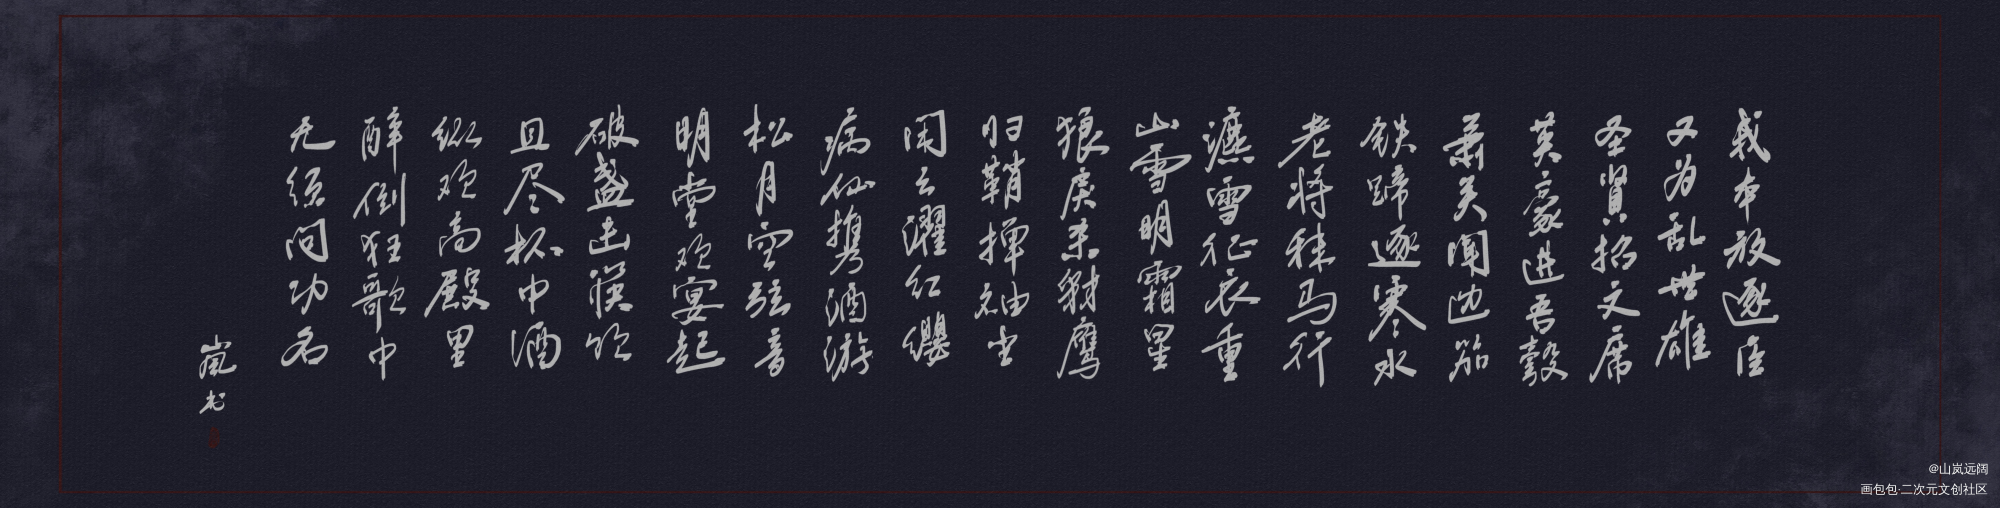 我本放逐臣
又为乱世雄
圣贤招文席
英豪进吾彀
萧关闻边笳
铁蹄逐寒水
老将秣马行
瀌雪征衣重
山雪明霜星
狼戾杀豺鹰
归鞘掸袖尘
闲云濯红缨
病仙携酒游
松月空弦音
明堂欢宴起
破盏击筷饮
且尽杯中酒
纵观高殿里
醉倒狂歌中
无须问功名
岚书
@山岚远阔
画包包·二次元文创社区